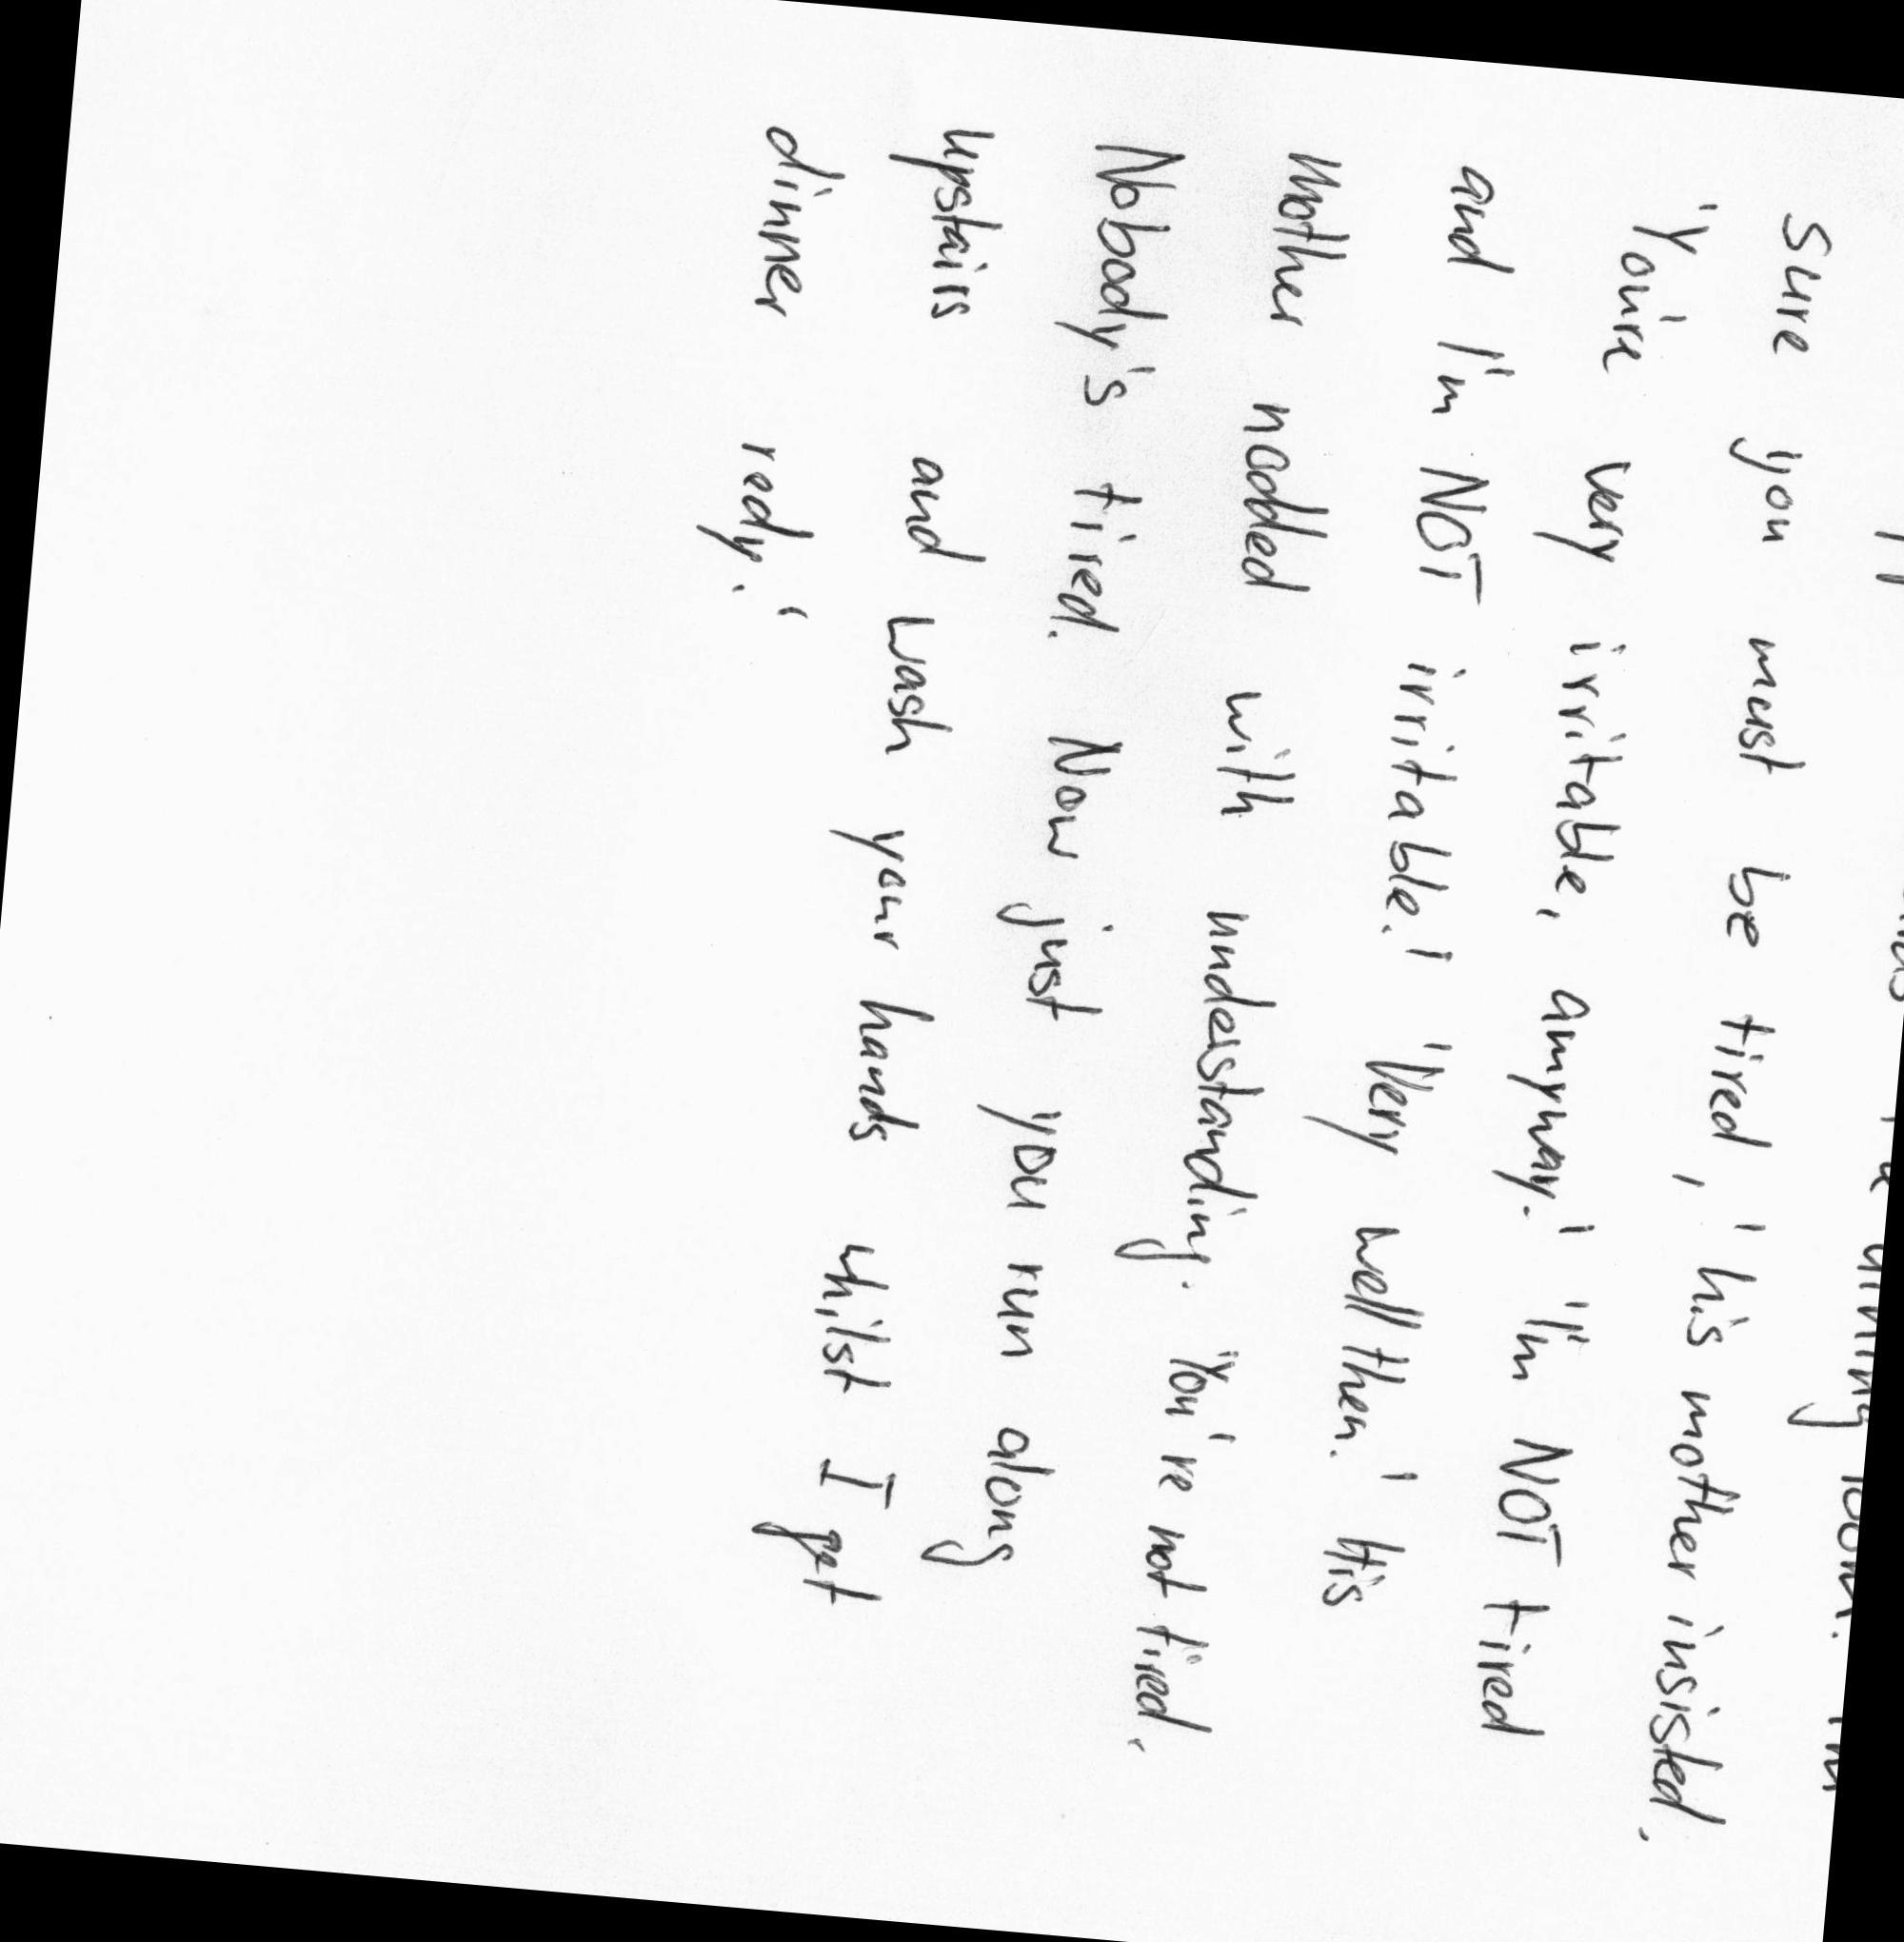 dining room. I'm
sure you must be tired,' his mother insisted.
'You're very irritable, anyway.' 'I'm NOT tired
and I'm NOT irritable!' 'Very well then.' His
mother nodded with understanding. 'You're not tired.
Nobody's tired. Now just you run along
upstairs and wash your hands whilst I get
dinner redy.'